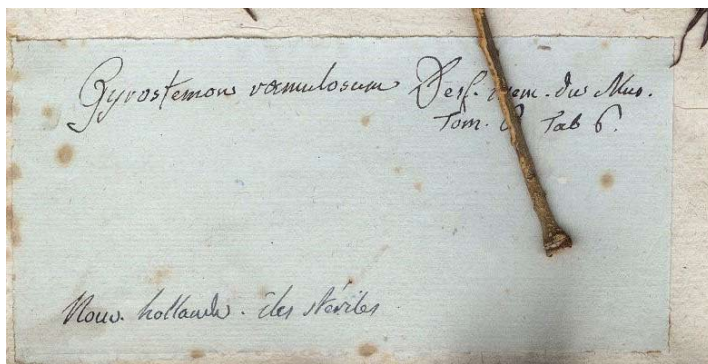 Gyrostemon ramulosum Desf. mem. du Mus.
Tom. 6 Tab 6.
Nouv. hollande. îles stériles